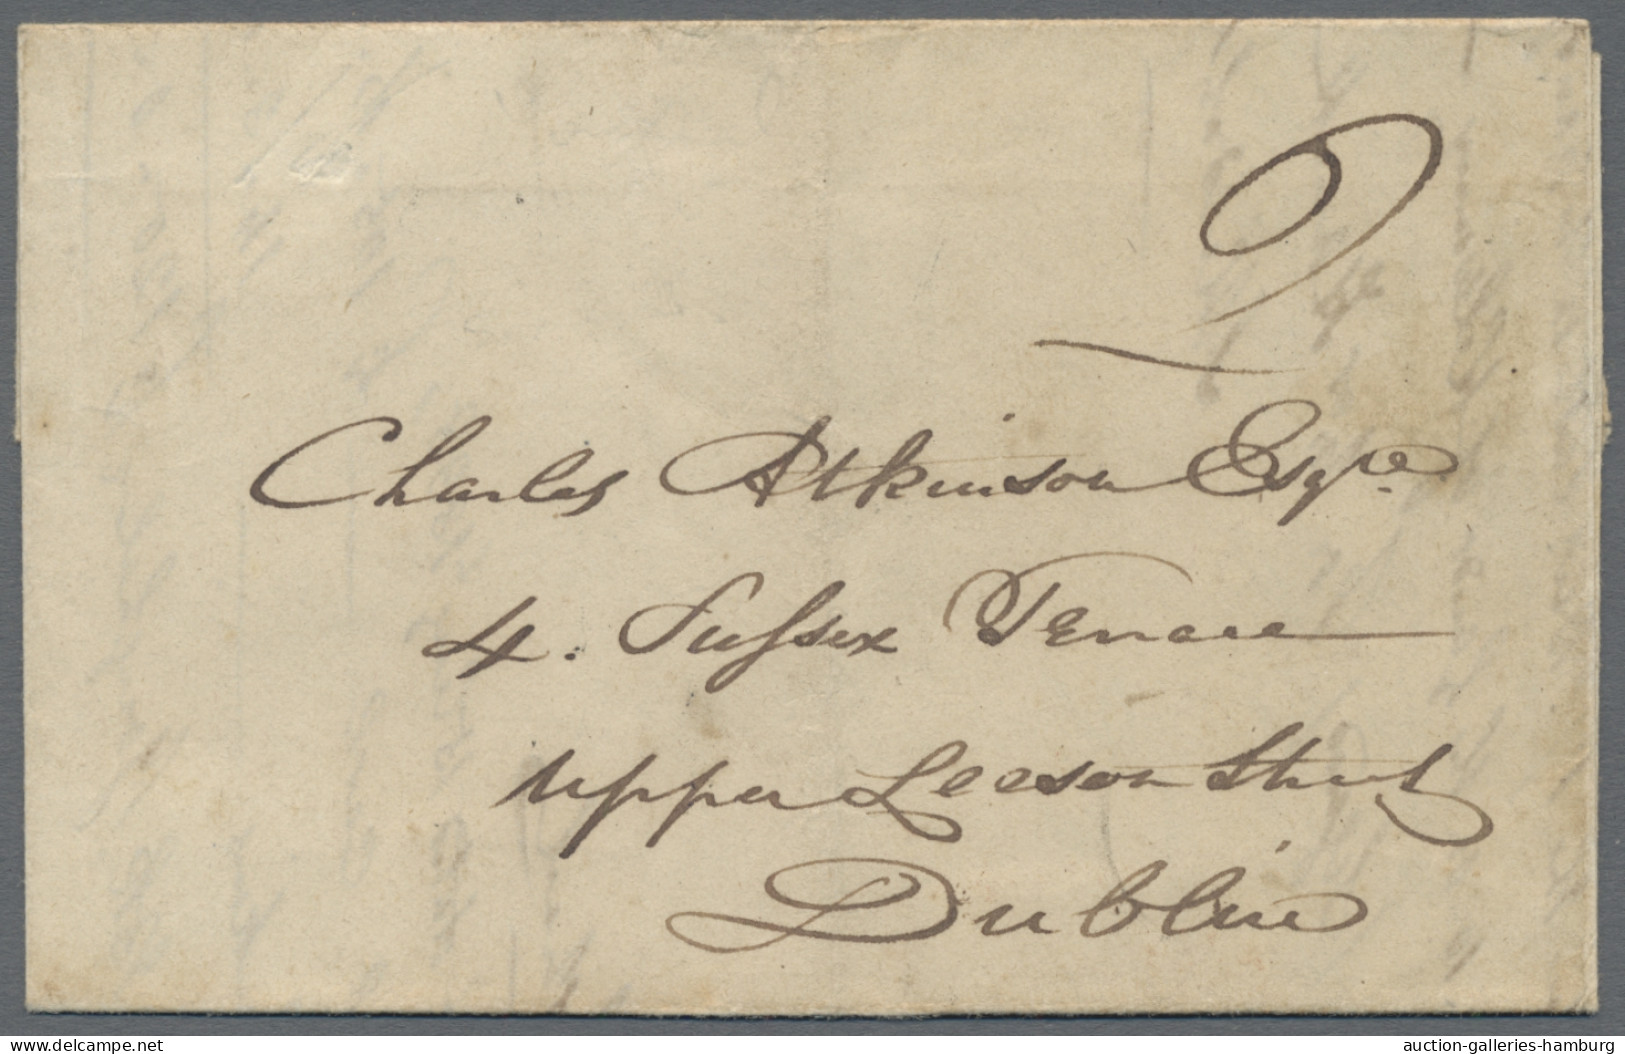 2
Charles Atkinson Esqre
4. Sussex Terrace
Upper Leeson Street
Dublin
www.delcampe.net
auction-galleries-hamburg